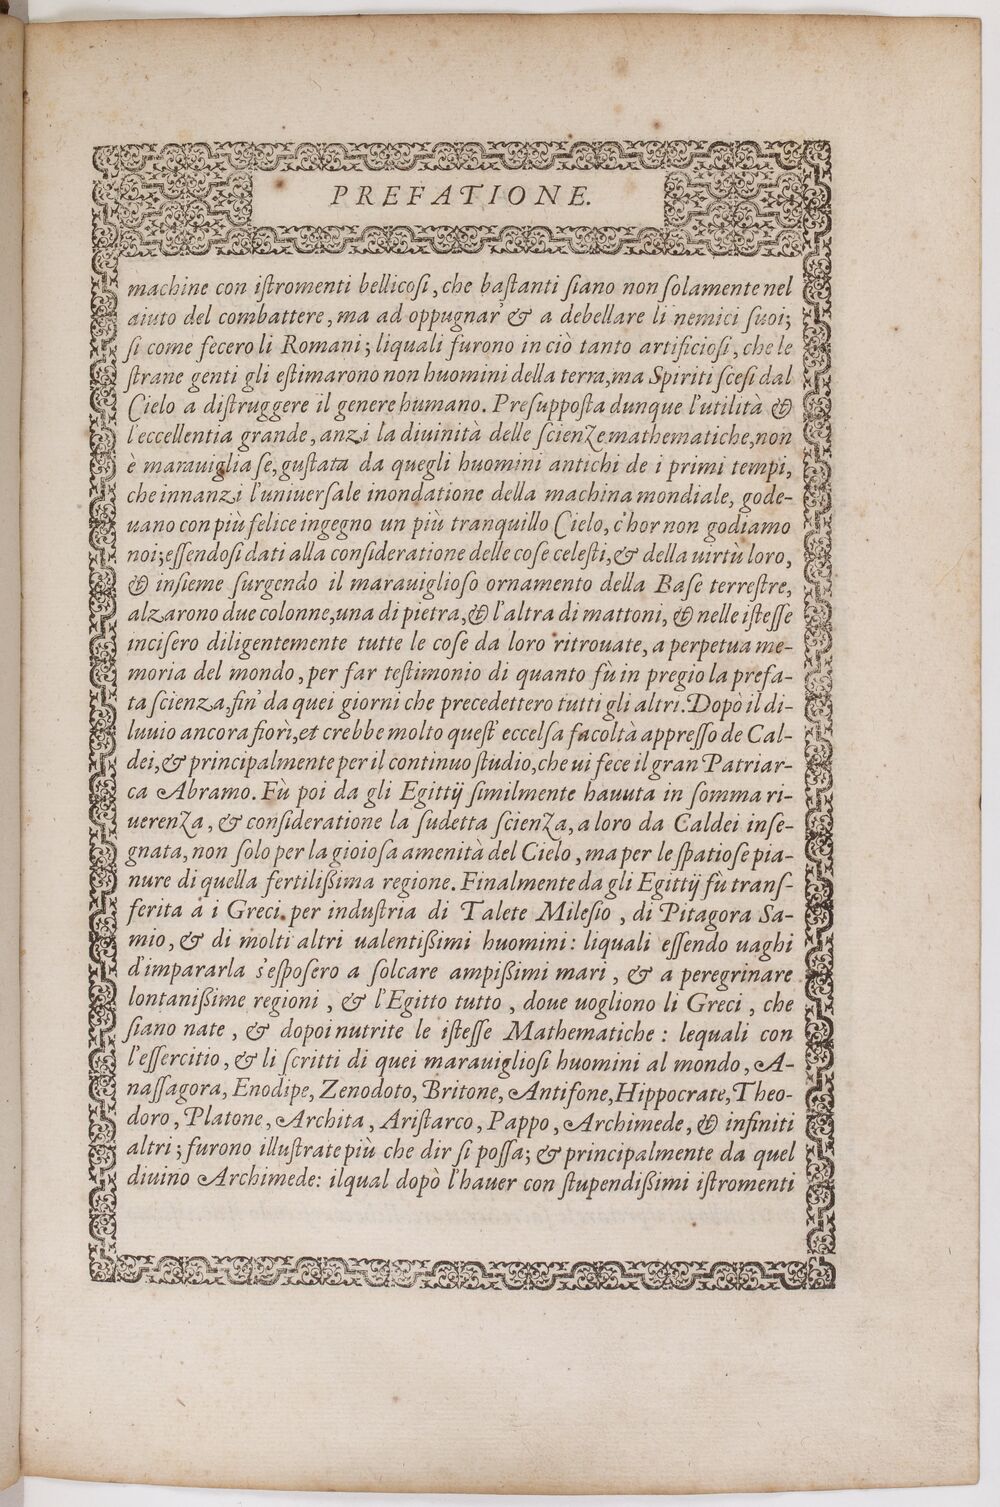 PREFATIONE.
machine con iſtromenti bellicoſi, che baſtanti ſiano non ſolamente nel
aiuto del combattere, ma ad oppugnar' & a debellare li nemici ſuoi;
ſi come fecero li Romani; liquali furono in ciò tanto artificioſi, che le
ſtrane genti gli eſtimarono non huomini della terra, ma Spiriti sceſi dal
Cielo a diſtruggere il genere humano. Preſuppoſta dunque l'utilità &
l'eccellentia grande, anzi la diuinità delle ſcienze mathematiche, non
è marauiglia ſe, guſtata da quegli huomini antichi de i primi tempi,
che innanzi l'uniuerſale inondatione della machina mondiale, gode-
uano con più felice ingegno un più tranquillo Cielo, c'hor non godiamo
noi; eſſendoſi dati alla conſideratione delle coſe celeſti, & della uirtù loro,
& inſieme ſurgendo il marauiglioso ornamento della Baſe terreſtre,
alzarono due colonne, una di pietra, & l'altra di mattoni, & nelle iſteſſe
inciſero diligentemente tutte le coſe da loro ritrouate, a perpetua me-
moria del mondo, per far teſtimonio di quanto fù in pregio la prefa-
ta ſcienza, fin' da quei giorni che precedettero tutti gli altri. Dopò il di-
luuio ancora fiorì, et crebbe molto queſt' eccelſa facoltà appreſſo de Cal-
dei, & principalmente per il continuo ſtudio, che ui fece il gran Patriar-
ca Abramo. Fù poi da gli Egittij ſimilmente hauuta in ſomma ri-
uerenza, & conſideratione la ſudetta ſcienza, a loro da Caldei inſe-
gnata, non ſolo per la gioioſa amenità del Cielo, ma per le ſpatioſe pia-
nure di quella fertiliſſima regione. Finalmente da gli Egittij fù tranſ-
ferita a i Greci per induſtria di Talete Mileſio, di Pitagora Sa-
mio, & di molti altri ualentiſſimi huomini: liquali eſſendo uaghi
d'impararla s'eſpoſero a ſolcare ampiſſimi mari, & a peregrinare
lontaniſſime regioni, & l'Egitto tutto, doue uogliono li Greci, che
ſiano nate, & dopoi nutrite le iſteſſe Mathematiche: lequali con
l'eſſercitio, & li ſcritti di quei marauiglioſi huomini al mondo, A-
naſſagora, Enodipe, Zenodoto, Britone, Antifone, Hippocrate, Theo-
doro, Platone, Archita, Ariſtarco, Pappo, Archimede, & infiniti
altri; furono illuſtrate più che dir ſi poſſa; & principalmente da quel
diuino Archimede: ilqual dopò l'hauer con ſtupendiſſimi iſtromenti